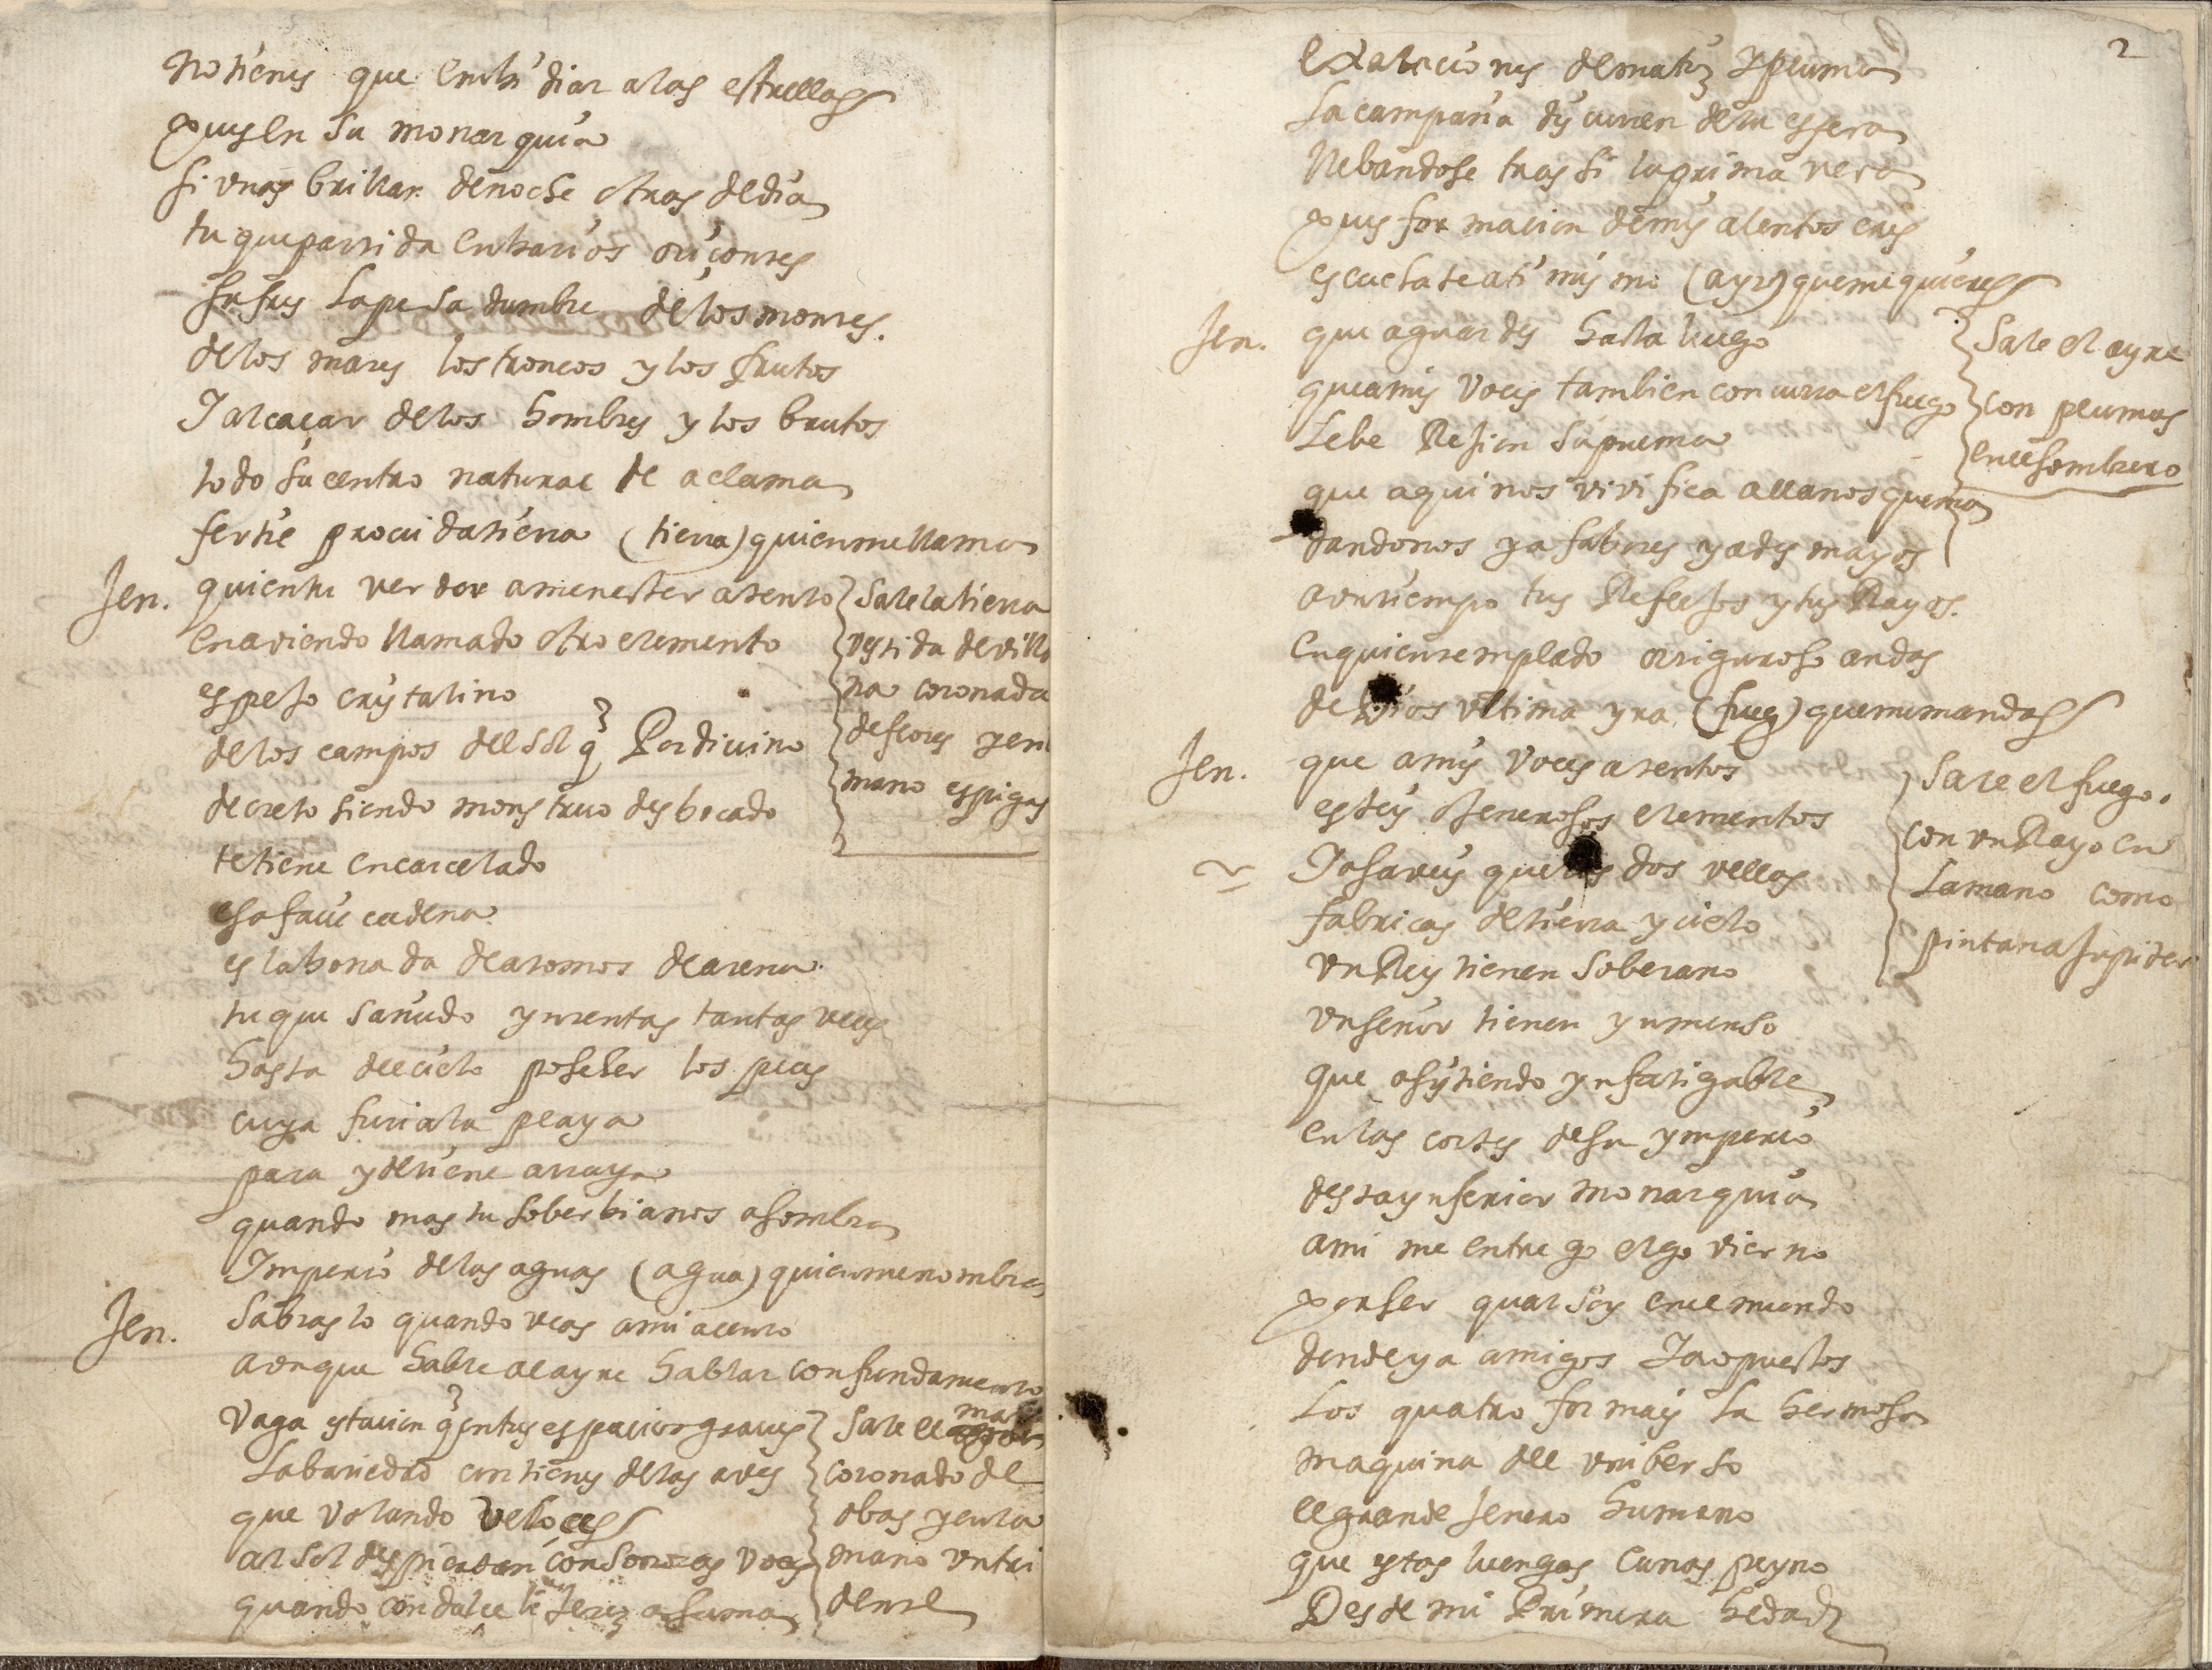 no tienes que embidiar a las estrellas
pues en su monarquia
si unas brillan de noche otras de dia
tu que parrida en barios oriçontes
sufres la pesadumbre de los montes.
de los mares los troncos y los frutos
I alcaçar de los hombres y los brutos
todo su centro natural te aclama
fertil procuida tierra (tierra) quien me llama
Jen. quien tu verdor a menester atento
en aviendo llamado otro elemento
espejo cristalino
de los campos del sol q Por divino
decreto siendo monstruo desbocado
te tiene encarcelado
esa facil cadena
eslabonada de atomos de arena
tu que sañudo yntentas tantas veces
hasta del cielo poseher los peces
cuya furia la playa
para y detiene a raya
quando mas tu soberbia nos asombra
Imperio de las aguas (agua) quien me nombra
Jen. sabras lo quando veas a mi acento
aunque hable al ayre hablar con fundamento
Vaga estacion q en tus espacios graves
La bariedad contienes de las aves
que volando veloces
al sol despiertan con sonoras voces
quando con dulce
Sale la tierra
vestida de villa
na coronada
de flores y en
mano espigas
Sale el mar
coronado de
obas y en la
mano un tri
dente
2
exalaciones de matiz y pluma
La campaña discurren de tu esfera
llebandose tras si la primavera
pues formacion de mis alentos eres
escuchate a ti mismo (ayre) que me quieres
Jen. que aguardes hasta luego
que a mis voces tambien concurra el fuego
Lebe Rejion suprema
que aqui nos vivifica alla nos quema
dandonos ya fabores ya desmayos
a un tiempo tus Reflejos y tus Rayos.
en quien templado o riguroso andas
de Dios ultima yra (fueg) que me mandas
Jen. que a mis voces atentos
esteis Jenerosos elementos
Ya sabeis que las dos bellas
fabricas de tierra y cielo
un Rey tienen soberano
un señor tienen ynmenso
que asistiendo ynfatigable
en las cortes de su ymperio
desta ynferior monarquia
a mi me entrego el govierno
por ser qual soy en el mundo
donde ya amigos Ya opuestos
Los quatro formais la hermosa
maquina del uniberso
el grande Jenero humano
que estas luengas canas peyno
Desde mi Primera hedad
Sale el ayre
con plumas
en el sombrero
Sale el fuego.
con un Rayo en
La mano como
pintan a Jupiter